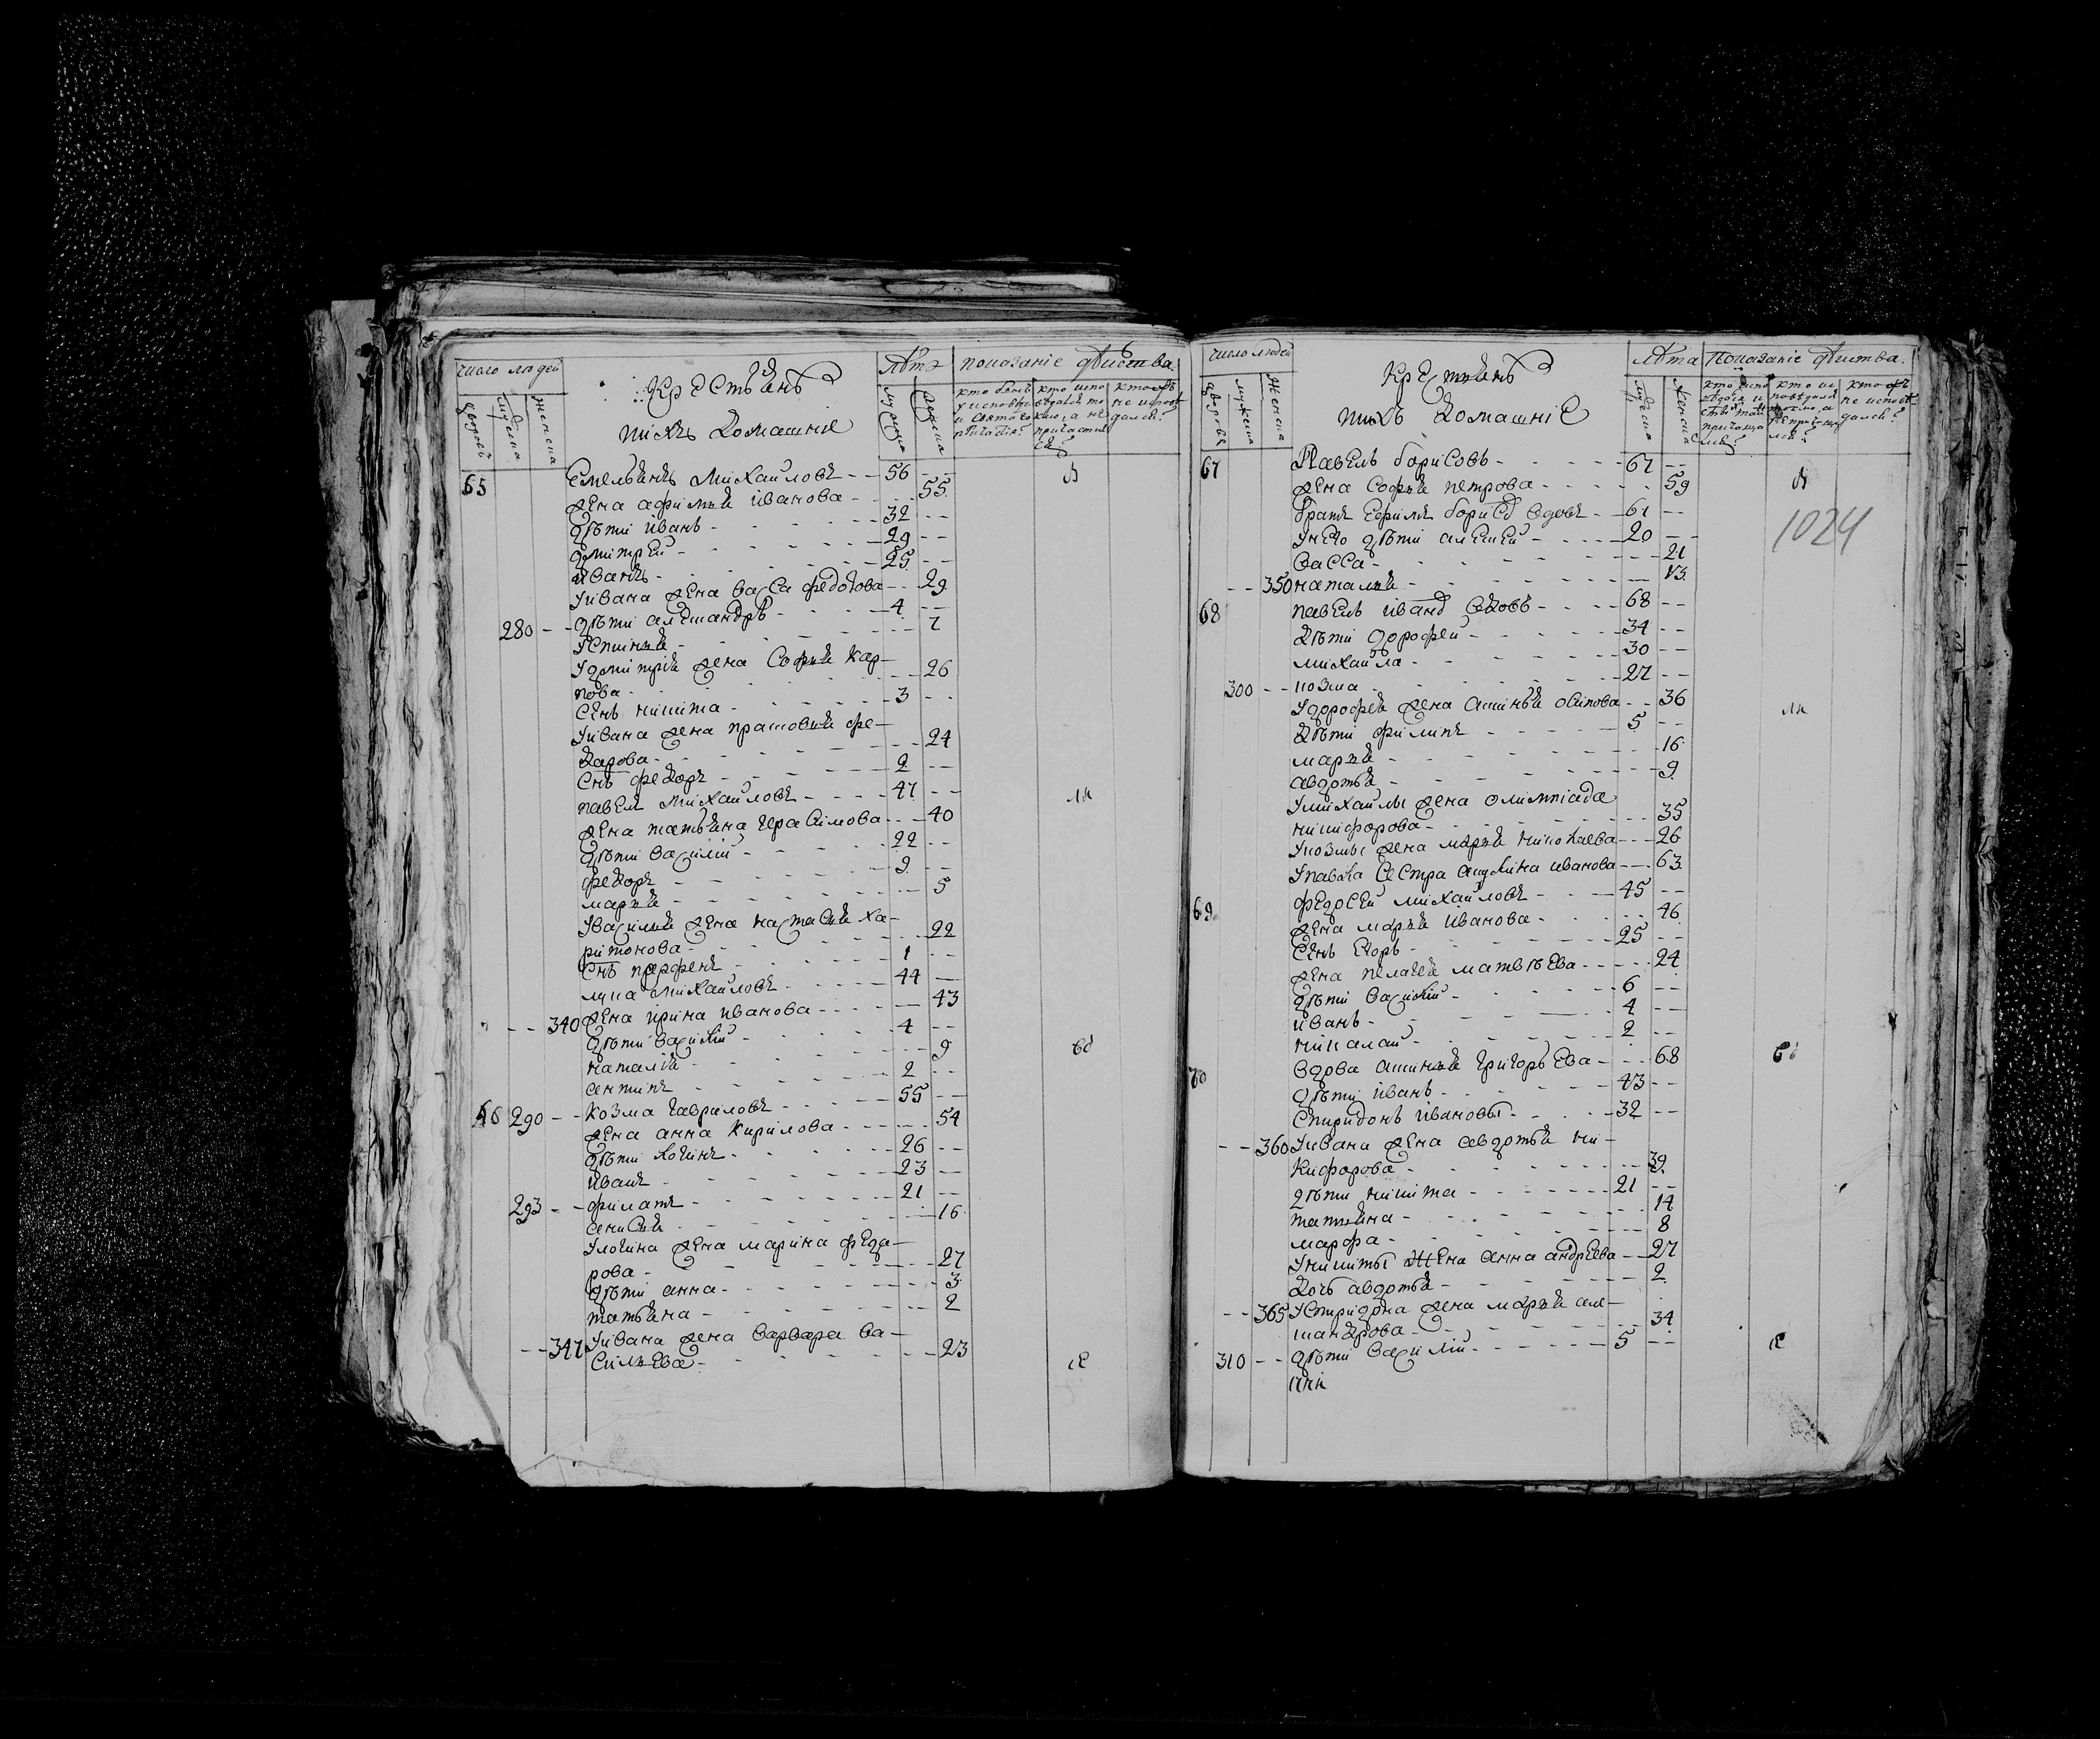 число людей
дворовъ
мужеска
женска
крестьянъ
ихъ домашніе
лѣта
мужска
женска
показаніе действа
кто не исповѣдался?
65 Емельянъ Михайловъ - - 56
жена афимья иванова - 55
дѣти иванъ - 32
дмитрей - 29
иванъ - 25
Уивана жена васса федотова - - 29
280 - - дѣти александръ - 4
устинья - 7
Удмитрія жена Софья кар-
пова - 26
сынъ никита - 3
Уивана жена прасковья фе-
дарова - 24
Снъ федоръ - 2
павелъ михайловъ - 47
жена татьяна герасимова - 40
дѣти василій - 22
федоръ - 9
марья - 5
Увасилья жена настасья ха-
ритонова - 22
Снъ парфенъ - 1
лука михайловъ - 44
- - 340 жена ирина иванова - 43
дѣти василій - 4
наталія - 9
2
66 290 - - козма гавриловъ - 55
жена анна кирилова - 54
дѣти логинъ - 26
иванъ - 23
293 - - филатъ - 21
16
Улогина жена марина феда-
рова - 27
дѣти анна - 3
татьяна - 2
- - 347 Уивана жена варвара ва-
сильева - 23
число людей
дворовъ
мужеска
женска
крестьянъ
ихъ домашніе
лѣта
женска
показаніе действа
67 Павелъ борисовъ - 67
жена Софья петрова - 59
братъ Ефимъ борисо вдовъ - 61
Унего дѣти алексей - 20
васса - 21
- - 350 наталья - 13
1024
68 павелъ иванo вдовъ - 68
дѣти дорофей - 34
михайла - 30
300 - - козма - 27
Удорофея жена аксинья осипова - - 36
дѣти филипъ - 5
марья - 16
авдотья - 9
Умихайлы жена олимпіада
никифорова - 35
Укозмы жена марья николаева - - 26
Упавла сестра акулина иванова - - 63
69 федосей михайловъ - 45
жена марья иванова - 46
сынъ егоръ - 25
жена пелагея матвѣева - 24
дѣти василій - 6
иванъ - 4
николай - 2
70 вдова аксинья григорьева - 68
дѣти иванъ - 43
спиридонъ ивановы - 32
- - 360 Уивана жена авдотья ни-
кифорова - 39
дѣти никита - 21
татьяна - 14
марфа - 8
Уникиты жена анна андреева - - 27
дочь авдотья - 2
- - 365 Успиридона жена марья але-
ксандрова - 34
310 - - дѣти василій - 5